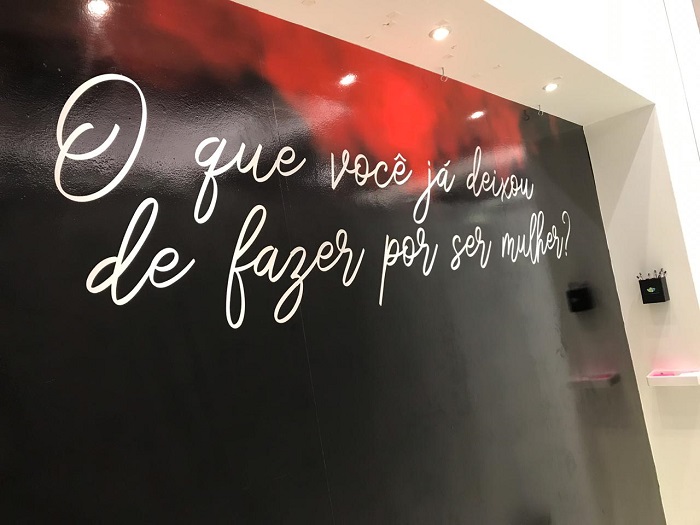 O que você já deixou
de fazer por ser mulher?